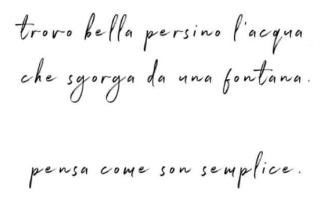 trovo bella persino l'acqua
che sgorga da una fontana.
pensa come son semplice.